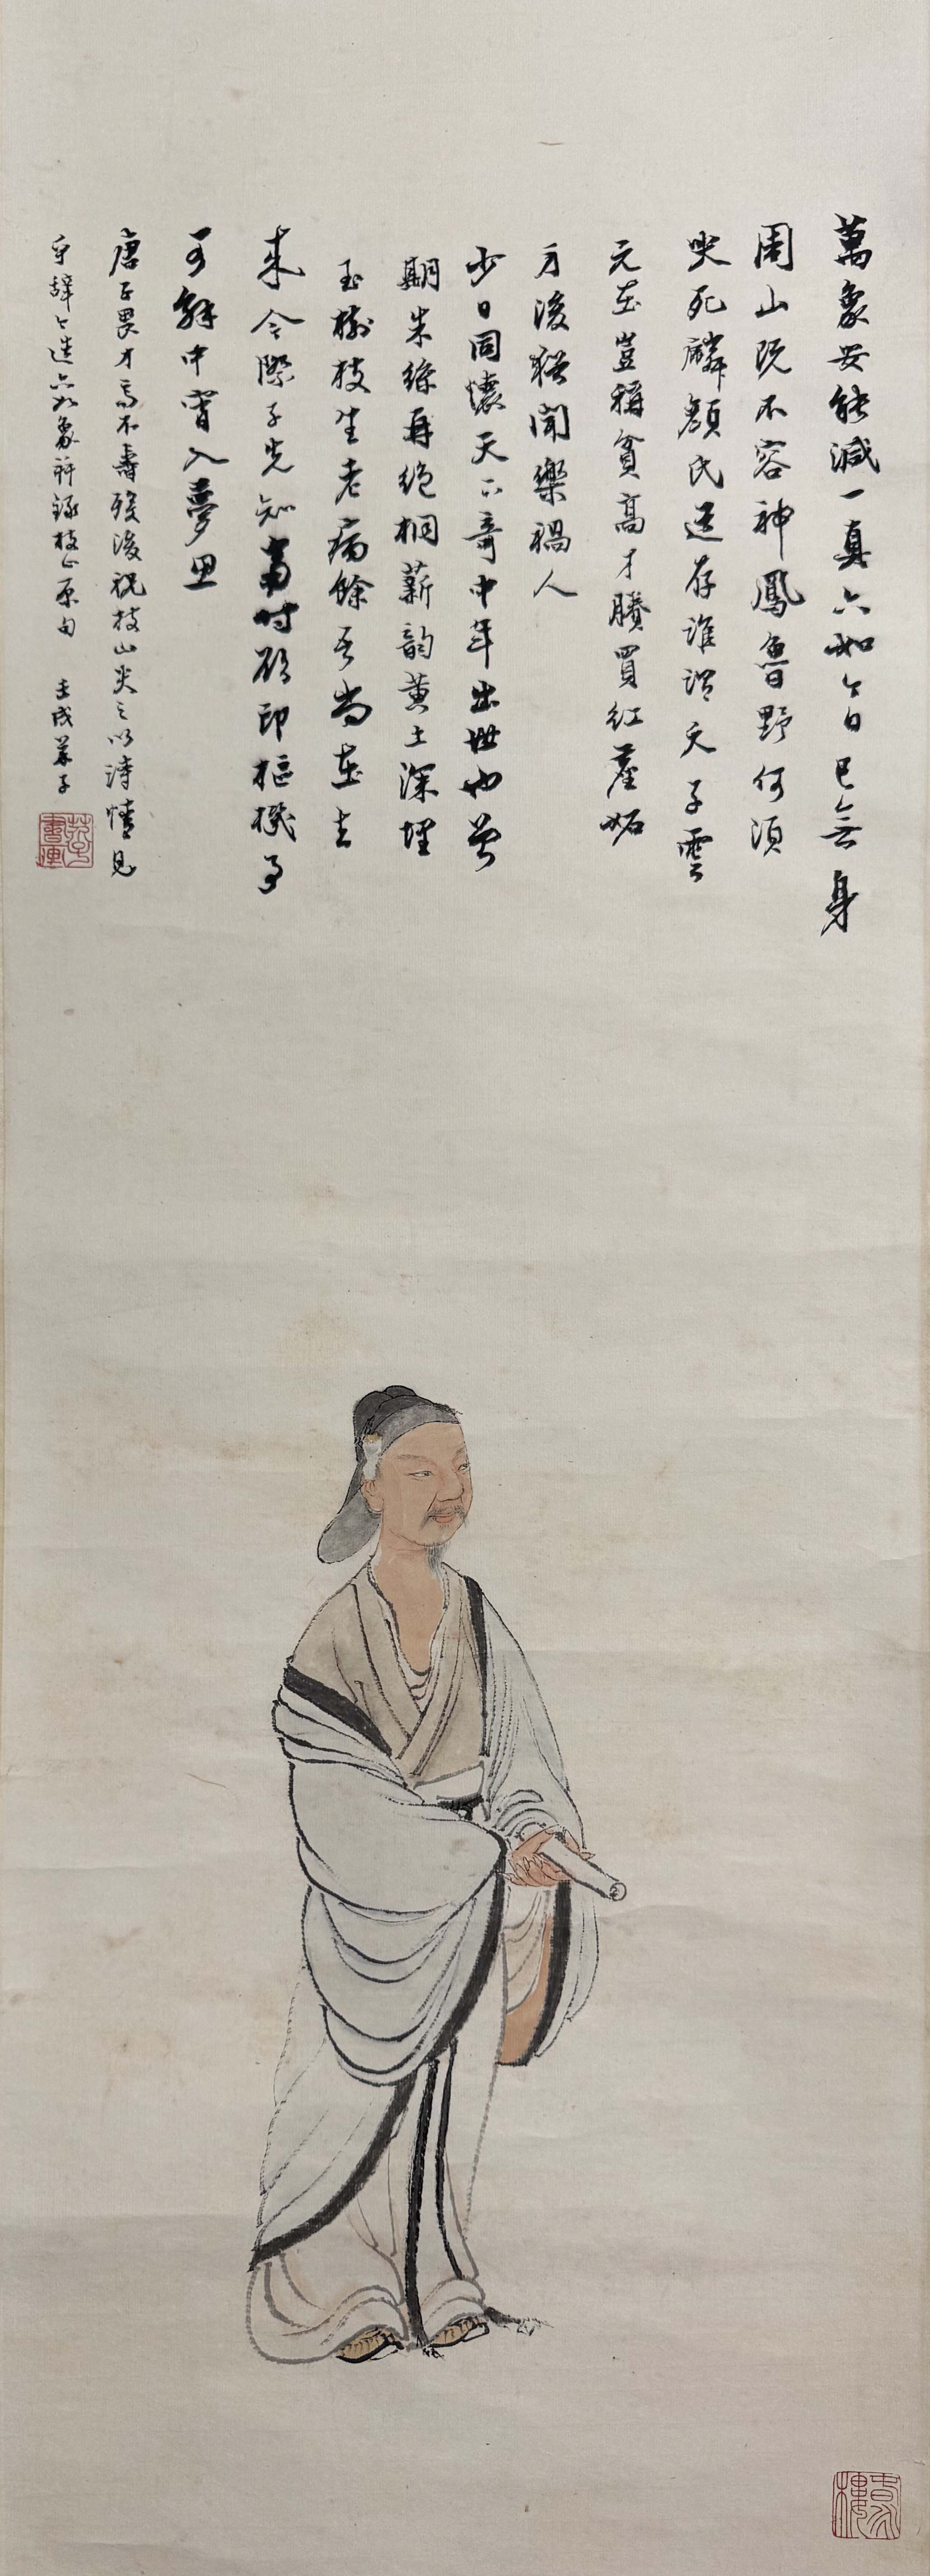 萬象安能減一真六如今日已無身
周山既不容神鳳魯野何須
哭死麟顏氏道存誰謂夭子雲
元在豈稱貧高才賸買紅塵妬
身後猶聞樂禍人
少日同懷天下奇中年出世也曾
期朱絲再絕桐薪韻黃土深埋
玉樹枝生老病餘吾尚在去
來今際子先知當時欲印樞機事
可解中宵入夢思
唐子畏才高不壽歿後祝枝山哭之以詩情見
乎辭造六如象并錄枝山原句 壬戌子